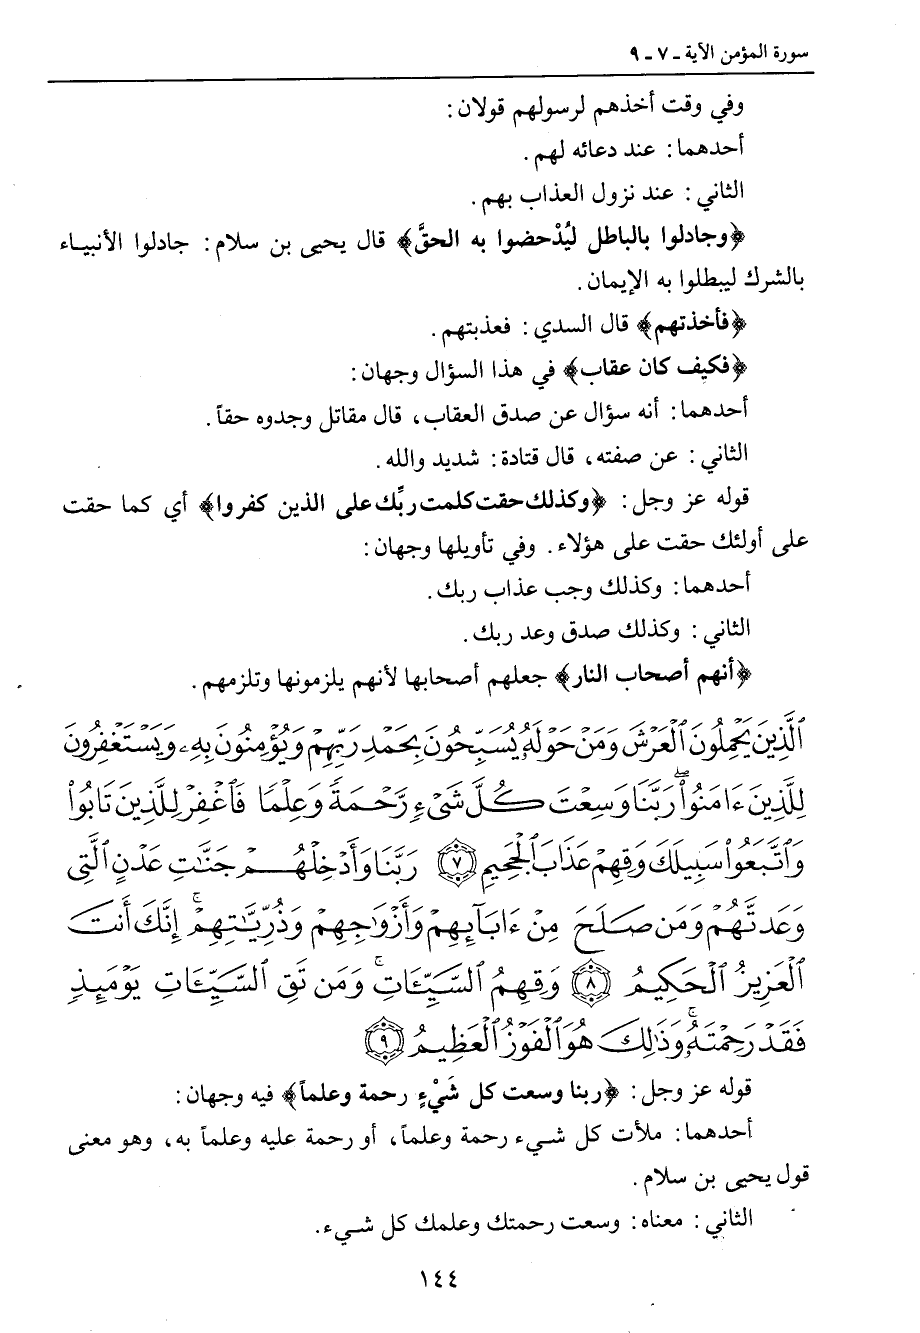 سورة المؤمن الآية ـ ٧ ـ ٩
وفي وقت أخذهم لرسولهم قولان:
أحدهما: عند دعائه لهم.
الثاني: عند نزول العذاب بهم.
﴿وجادلوا بالباطل ليُدْحضوا به الحقَّ﴾ قال يحيى بن سلام: جادلوا الأنبياء
بالشرك ليبطلوا به الإيمان.
﴿فأخذتهم﴾ قال السدي: فعذبتهم.
﴿فكيف كان عقاب﴾ في هذا السؤال وجهان:
أحدهما: أنه سؤال عن صدق العقاب، قال مقاتل وجدوه حقاً.
الثاني: عن صفته، قال قتادة: شديد والله.
قوله عز وجل: ﴿وكذلك حقت كلمت ربِّك على الذين كفروا﴾ أي كما حقت
على أولئك حقت على هؤلاء. وفي تأويلها وجهان:
أحدهما: وكذلك وجب عذاب ربك.
الثاني: وكذلك صدق وعد ربك.
﴿أنهم أصحاب النار﴾ جعلهم أصحابها لأنهم يلزمونها وتلزمهم.
ٱلَّذِينَ يَحْمِلُونَ ٱلْعَرْشَ وَمَنْ حَوْلَهُۥ يُسَبِّحُونَ بِحَمْدِ رَبِّهِمْ وَيُؤْمِنُونَ بِهِۦ وَيَسْتَغْفِرُونَ
لِلَّذِينَ ءَامَنُوا۟ ۖ رَبَّنَا وَسِعْتَ كُلَّ شَىْءٍ رَّحْمَةً وَعِلْمًا فَٱغْفِرْ لِلَّذِينَ تَابُوا۟
وَٱتَّبَعُوا۟ سَبِيلَكَ وَقِهِمْ عَذَابَ ٱلْجَحِيمِ ﴿٧﴾ رَبَّنَا وَأَدْخِلْهُمْ جَنَّٰتِ عَدْنٍ ٱلَّتِى
وَعَدتَّهُمْ وَمَن صَلَحَ مِنْ ءَابَآئِهِمْ وَأَزْوَٰجِهِمْ وَذُرِّيَّٰتِهِمْ ۚ إِنَّكَ أَنتَ
ٱلْعَزِيزُ ٱلْحَكِيمُ ﴿٨﴾ وَقِهِمُ ٱلسَّيِّـَٔاتِ ۚ وَمَن تَقِ ٱلسَّيِّـَٔاتِ يَوْمَئِذٍ
فَقَدْ رَحِمْتَهُۥ ۚ وَذَٰلِكَ هُوَ ٱلْفَوْزُ ٱلْعَظِيمُ ﴿٩﴾
قوله عز وجل: ﴿ربنا وسعت كل شَيْءٍ رحمة وعلماً﴾ فيه وجهان:
أحدهما: ملأت كل شيء رحمة وعلماً، أو رحمة عليه وعلماً به، وهو معنى
قول يحيى بن سلام.
الثاني: معناه: وسعت رحمتك وعلمك كل شيء.
١٤٤